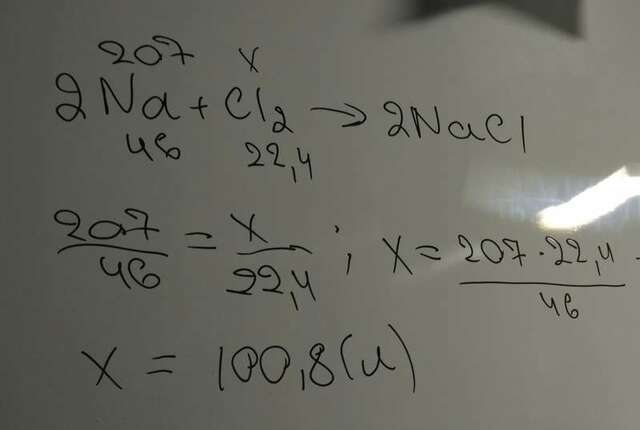 207 x
2Na + Cl₂ → 2NaCl
46 22,4
207/46 = x/22,4 ; x = 207 · 22,4/46
x = 100,8 (л)